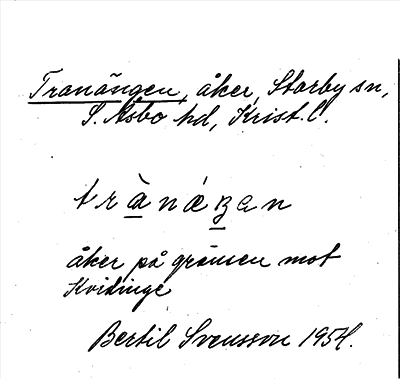 Tranängen, åker, Starby sn,
S. Åsbo hd, Krist. l.
trànáꞬen
åker på gränsen mot
Kvidinge
Bertil Svensson 1954.